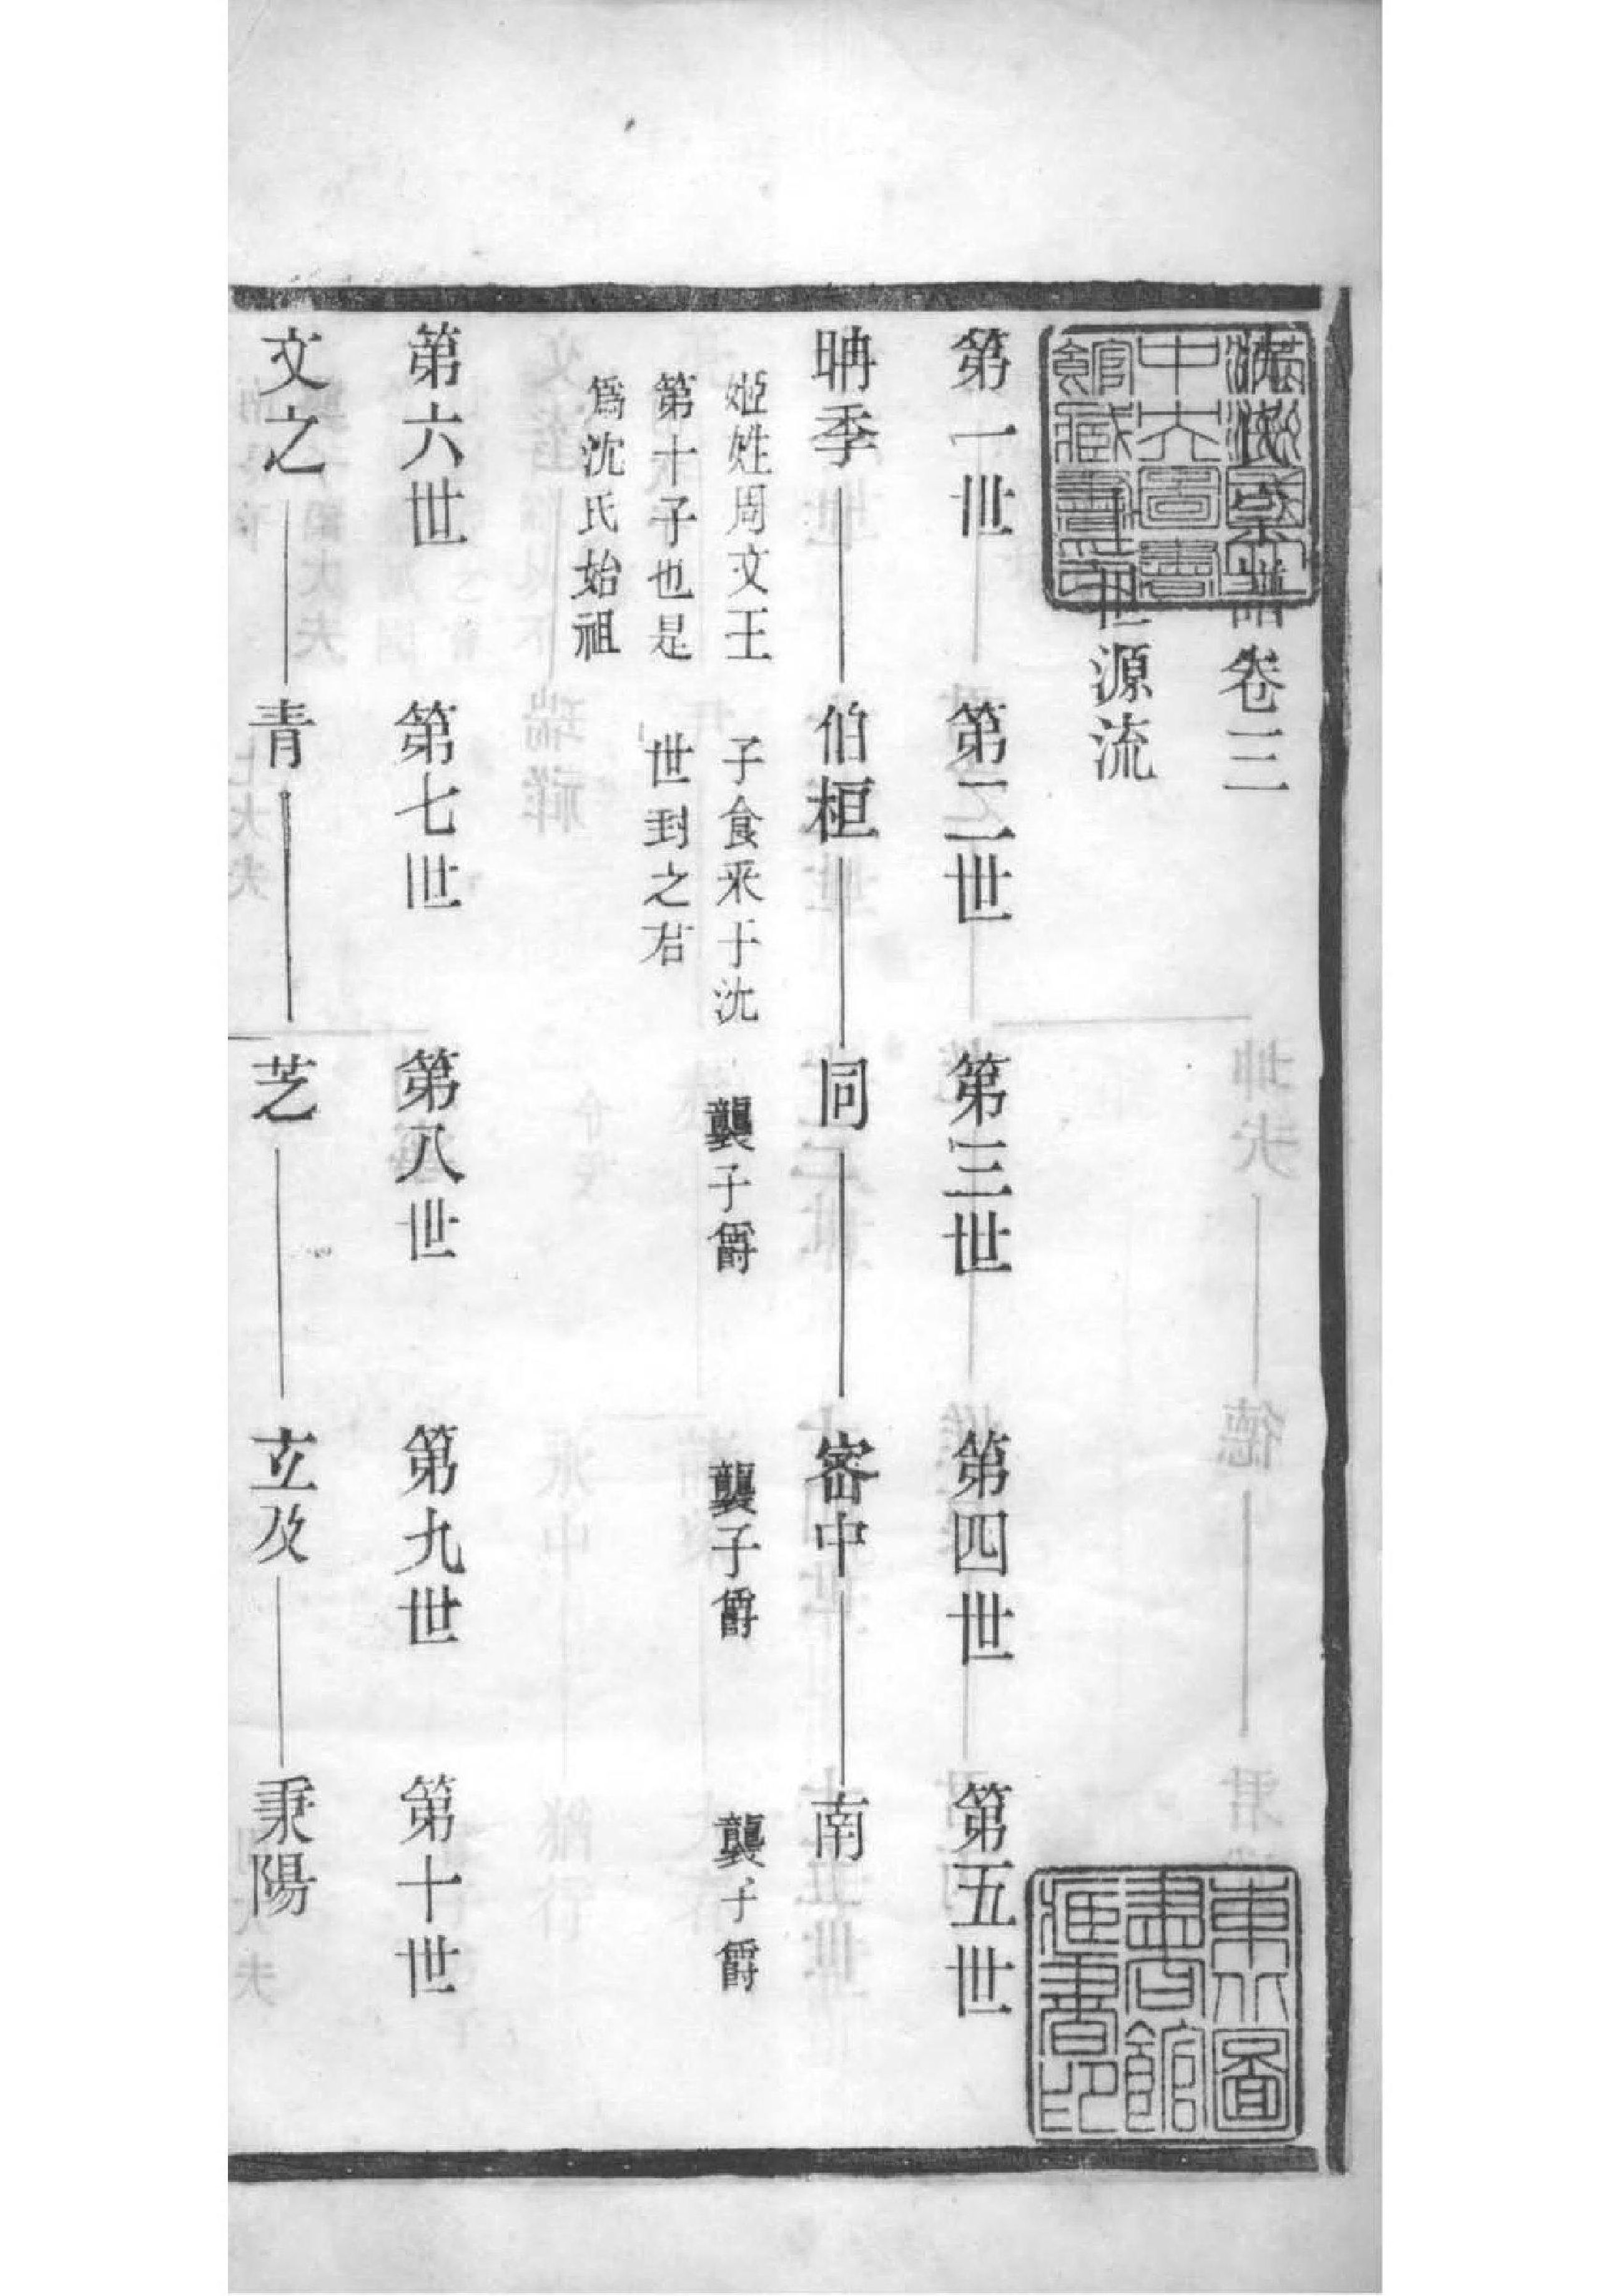 沈氏宗譜卷三
世源流
第一世 第二世 第三世 第四世 第五世
聃季 伯桓 同 密中 南
姬姓周文王
第十子也是
為沈氏始祖
子食采于沈
世封之君
襲子爵
襲子爵
襲子爵
第六世 第七世 第八世 第九世 第十世
文之 青 芝 立及 秉陽
東北圖
書館
藏書印